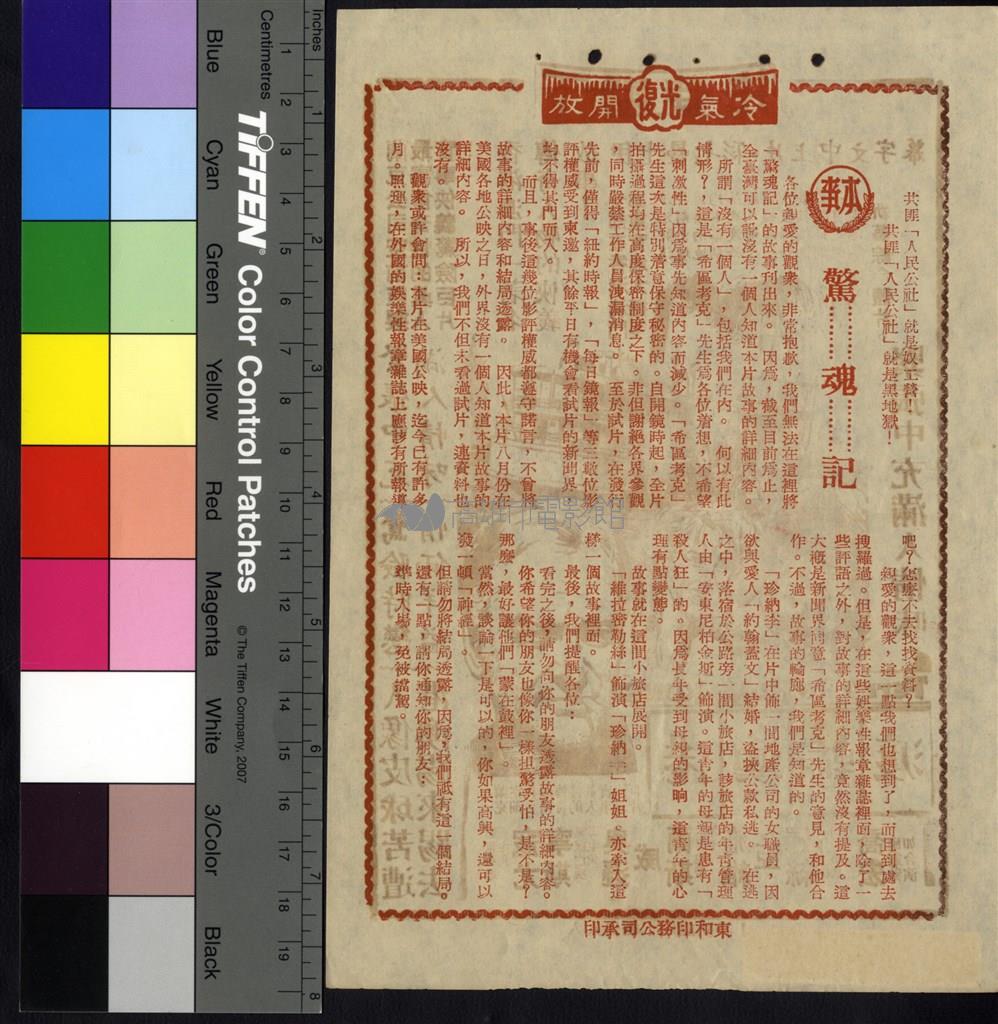 Inches
Centimetres
1
2
3
4
5
6
7
8
9
10
11
12
13
14
15
16
17
18
19
1
2
3
4
5
6
7
8
TIFFEN® Color Control Patches
© The Tiffen Company, 2007
Blue
Cyan
Green
Yellow
Red
Magenta
White
3/Color
Black
放開 復光 氣冷
共匪「人民公社」就是奴工營!
共匪「人民公社」就是黑地獄!
本事
驚………魂………記
各位親愛的觀衆,非常抱歉,我們無法在這裡將
「驚魂記」的故事刊出來。因爲,截至目前爲止,
全臺灣可以說沒有一個人知道本片故事的詳細內容。
所謂「沒有一個人」,包括我們在內。何以有此
情形?,這是「希區考克」先生爲各位着想,不希望
「刺激性」因爲事先知道內容而減少。「希區考克」
先生這次是特別着意保守秘密的。自開鏡時起,全片
拍攝過程均在高度保密制度之下。非但謝絕各界參觀
,同時嚴禁工作人員洩漏消息。至於試片,在發行
先前,僅得「紐約時報」,「每日鏡報」等三數位影
評權威受到東邀,其餘平日有機會看試片的新聞界
始不得其門而入。
而且,事後這幾位影評權威都遵守諾言,不曾將
故事的詳細內容和結局透露。因此,本片八月份在
美國各地公映之日,外界沒有一個人知道本片故事的
詳細內容。所以,我們不但未看過試片,連資料也
沒有。
觀衆或許會問:本片在美國公映,迄今已有許多
月。照理,在外國的娛樂性報章雜誌上應該有所報導
吧?怎麼不去找找資料?
親愛的觀衆,這一點我們也想到了,而且到處去
搜羅過。但是,在這些娛樂性報章雜誌裡面,除了一
些評語之外,對故事的詳細內容,竟然沒有提及。這
大槪是新聞界同意「希區考克」先生的意見,和他合
作。不過,故事的輪廓,我們是知道的。
「珍納李」在片中飾一間地產公司的女職員,因
欲與愛人「約翰蓋文」結婚,盜挾公款私逃。在逃
之中,落宿於公路旁一間小旅店,該旅店的年青管理
人由「安東尼柏金斯」飾演。這青年的母親是患有「
殺人狂」的。因爲長年受到母親的影响,這青年的心
理有點變態。
故事就在這間小旅店展開。
「維拉密勒絲」飾演「珍納李」姐姐。亦牽入這
樣一個故事裡面。
最後,我們提醒各位:
看完之後,請勿向你的朋友透露故事的詳細內容。
你希望你的朋友也像你一樣担驚受怕,是不是?
那麼,最好讓他們「蒙在鼓裡」。
當然,談論一下是可以的,你如果高興,還可以
發一頓「神經」。
但請勿將結局透露,因爲,我們祇有這一個結局。
還有一點,請你通知你的朋友:
準時入場,免被擋駕。
印承司公務印和東
高雄市電影館